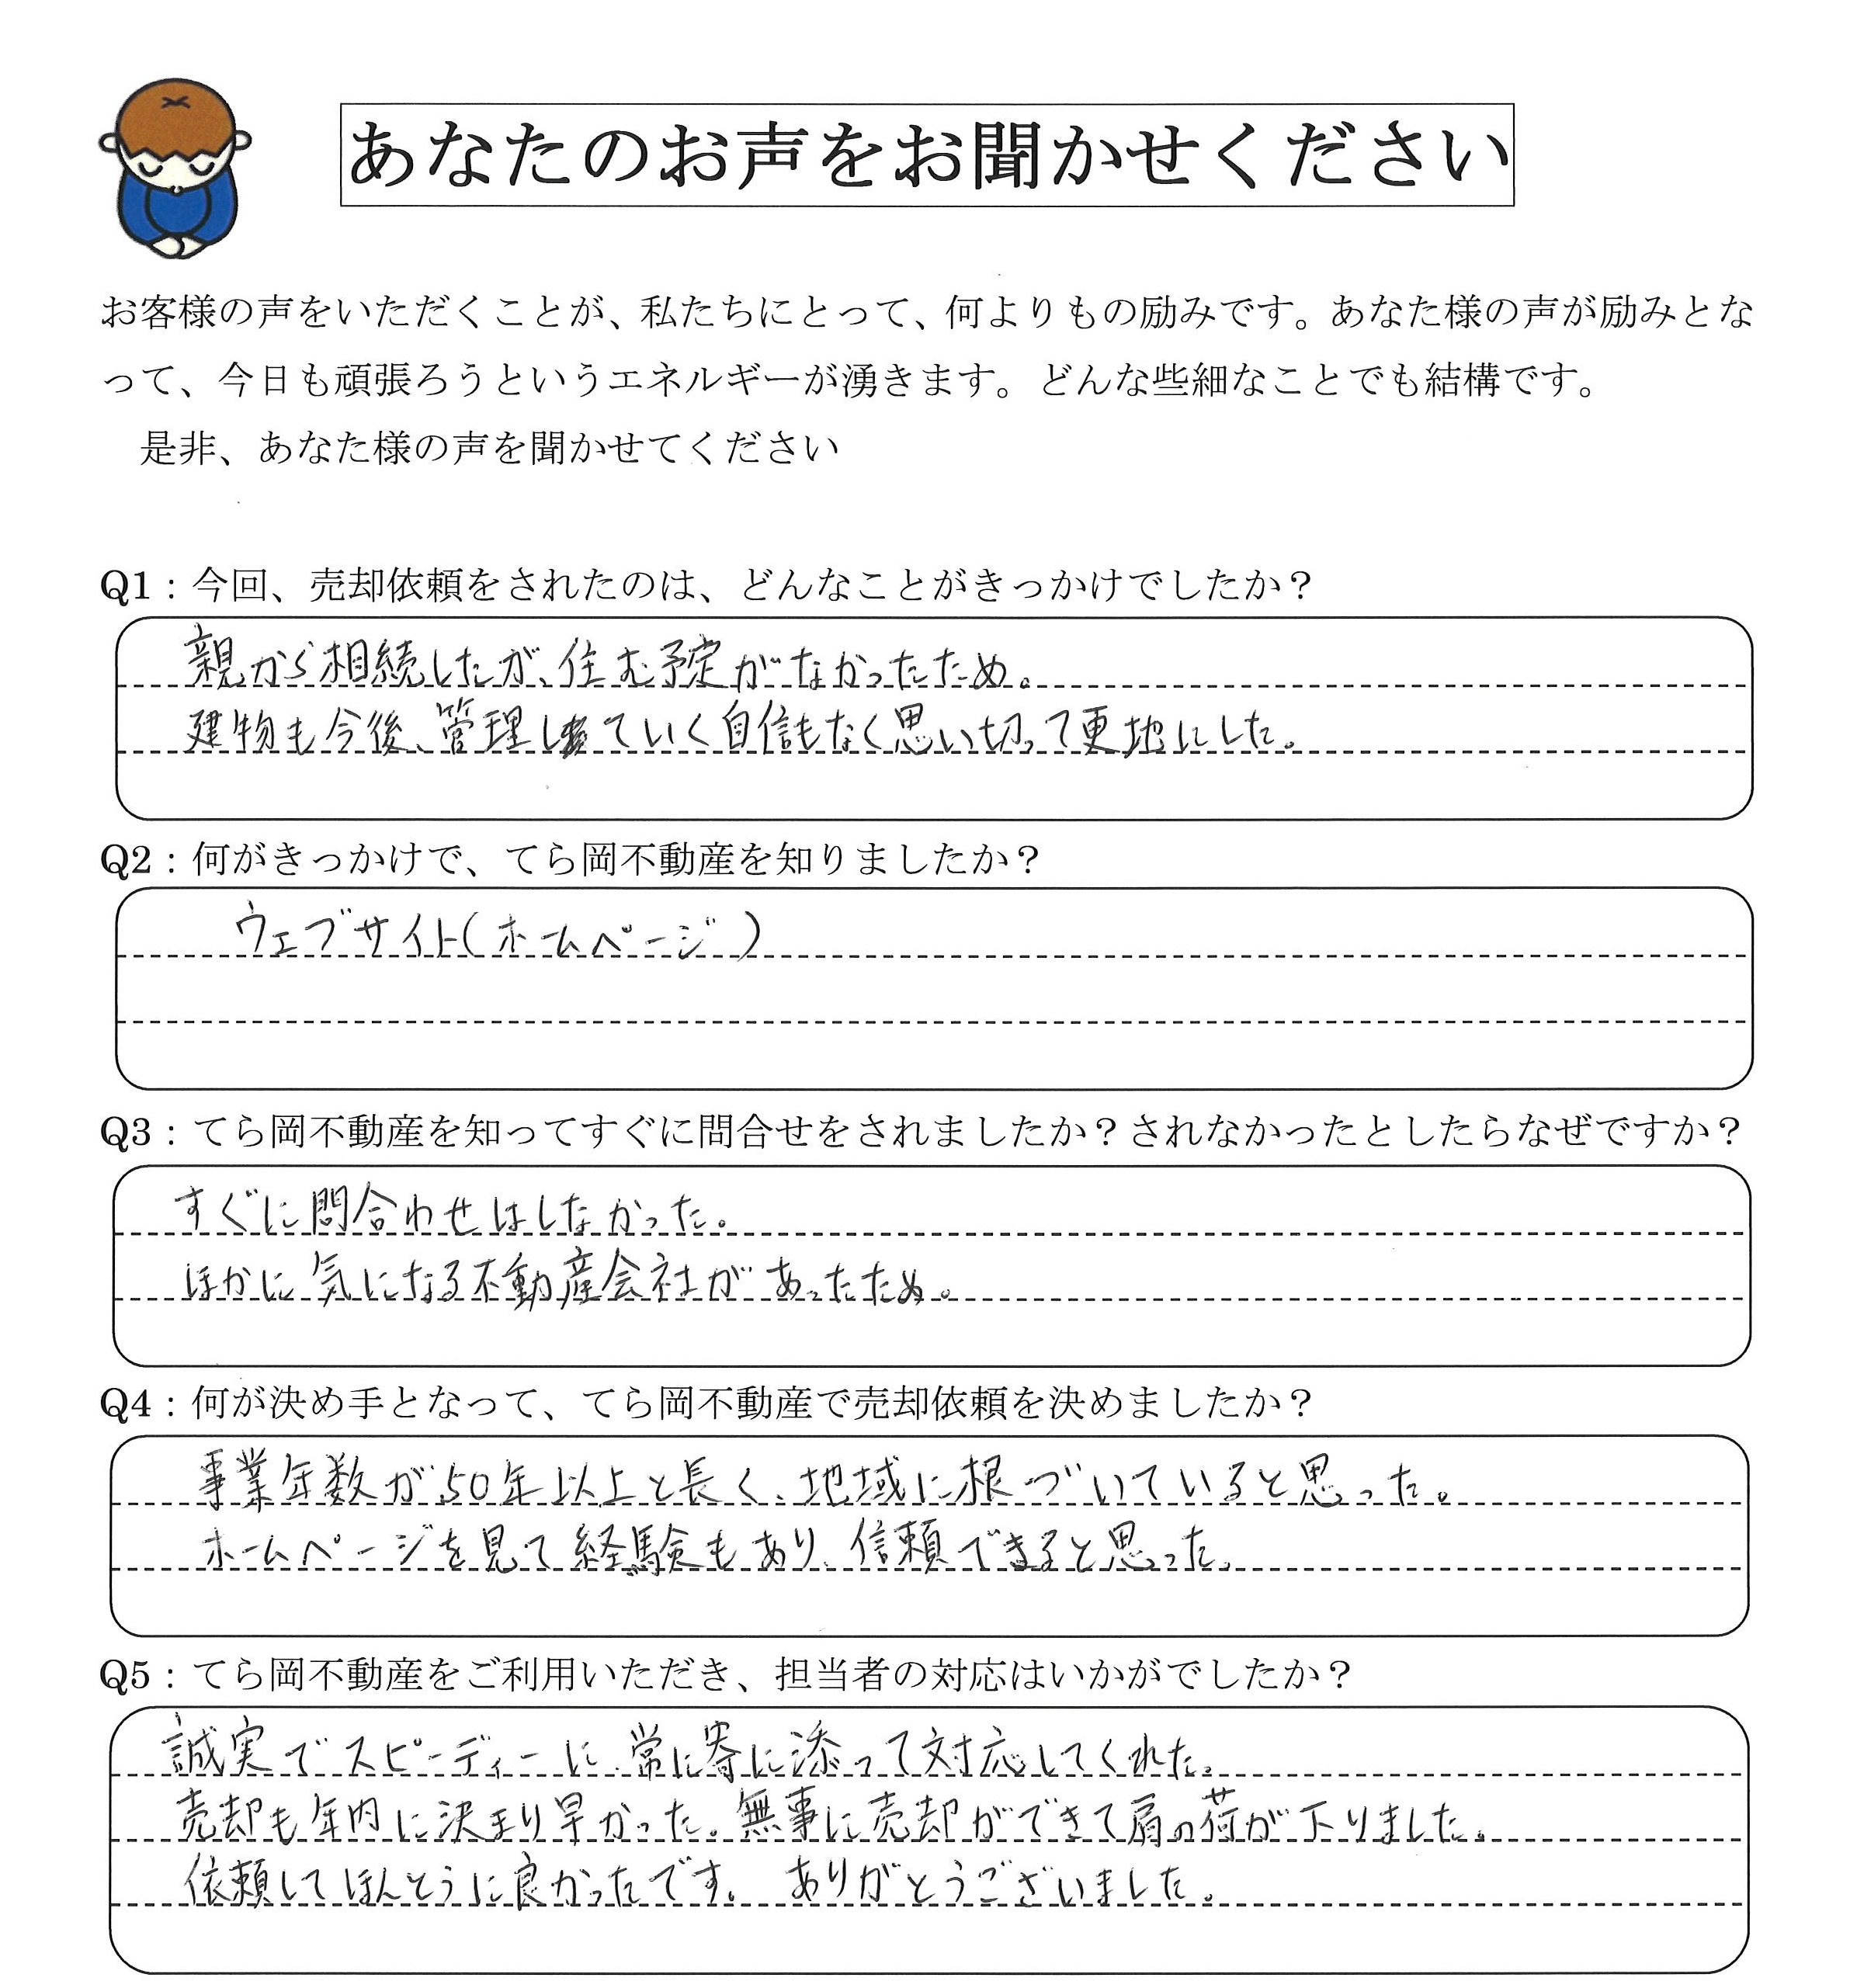 あなたのお声をお聞かせください
お客様の声をいただくことが、私たちにとって、何よりもの励みです。あなた様の声が励みとな
って、今日も頑張ろうというエネルギーが湧きます。どんな些細なことでも結構です。
是非、あなた様の声を聞かせてください
Q1：今回、売却依頼をされたのは、どんなことがきっかけでしたか？
親から相続したが、住む予定がなかったため。
建物も今後、管理していく自信もなく思い切って更地にした。
Q2：何がきっかけで、てら岡不動産を知りましたか？
ウェブサイト(ホームページ)
Q3：てら岡不動産を知ってすぐに問合せをされましたか？されなかったとしたらなぜですか？
すぐに問合わせはしなかった。
ほかに気になる不動産会社があったため。
Q4：何が決め手となって、てら岡不動産で売却依頼を決めましたか？
事業年数が50年以上と長く、地域に根づいていると思った。
ホームページを見て経験もあり、信頼できると思った。
Q5：てら岡不動産をご利用いただき、担当者の対応はいかがでしたか？
誠実でスピーディーに、常に寄に添って対応してくれた。
売却も年内に決まり早かった。無事に売却ができて肩の荷が下りました。
依頼してほんとうに良かったです。ありがとうございました。